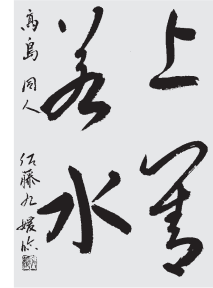 上善
若水
高島 同人
佐藤九嫒临